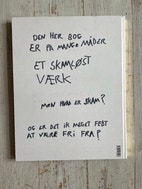 DEN HER BOG
ER PÅ MANGE MÅDER
ET SKAMLØST
VÆRK
MEN HVAD ER SKAM?
OG ER DET IK MEGET FEDT
AT VÆRE FRI FRA?